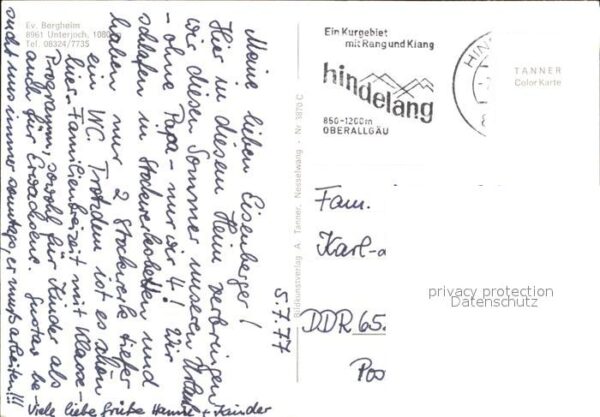 Ev. Bergheim
8961 Unterjoch, 1080
Tel. 08324/7735
Meine lieben Eisenberger!
Hier in diesem Heim verbringen
wir diesen Sommer unseren Urlaub
- ohne Papa - nur wir 4! Wir
schlafen in Stockwerksbetten und
haben nur 2 Stockwerke tiefer
ein WC. Trotzdem ist es schön
hier. Familienfreizeit mit Klasse-
Programm, sowohl für Kinder als
auch für Erwachsene. Gustav be-
sucht uns immer sonntags, er muß arbeiten!!!
Viele liebe Grüße Hanne + Kinder
5.7.77
Bildkunstverlag A. Tanner, Nesselwang - Nr. 3870 C
Ein Kurgebiet
mit Rang und Klang
hindelang
850-1200m
OBERALLGÄU
HIN
TANNER
Color Karte
Fam.
Karl-
DDR 65
Pos
privacy protection
Datenschutz